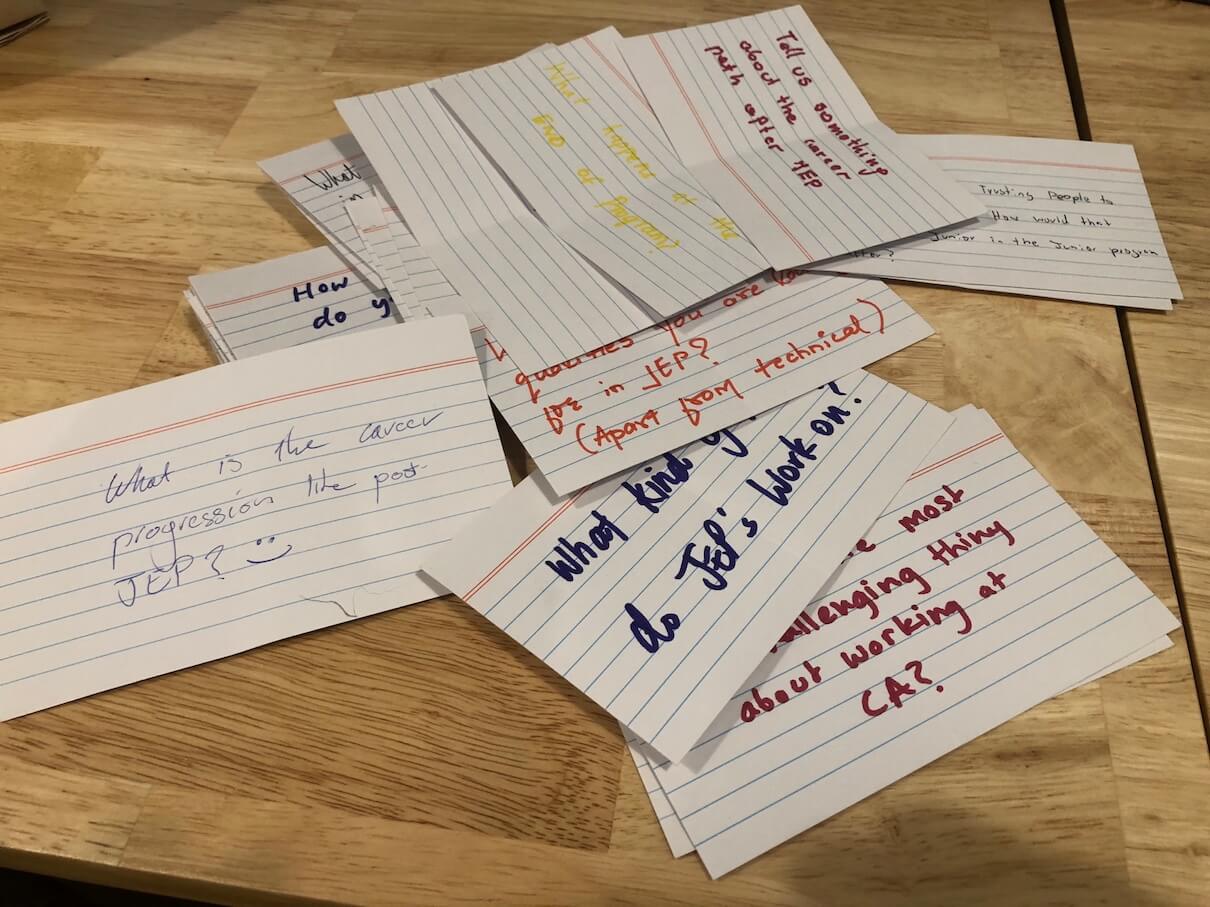 Tell us something
about the career
path after MEP
What happens at the
END of Program?
Trusting People to
How would that
Junior in the Junior program
What
in
How
do
qualities you are
for in JEP?
(Apart from technical)
What is the career
progression like post-
JEP? :)
What kind
do JEP's Work on?
most
challenging thing
about working at
CA?